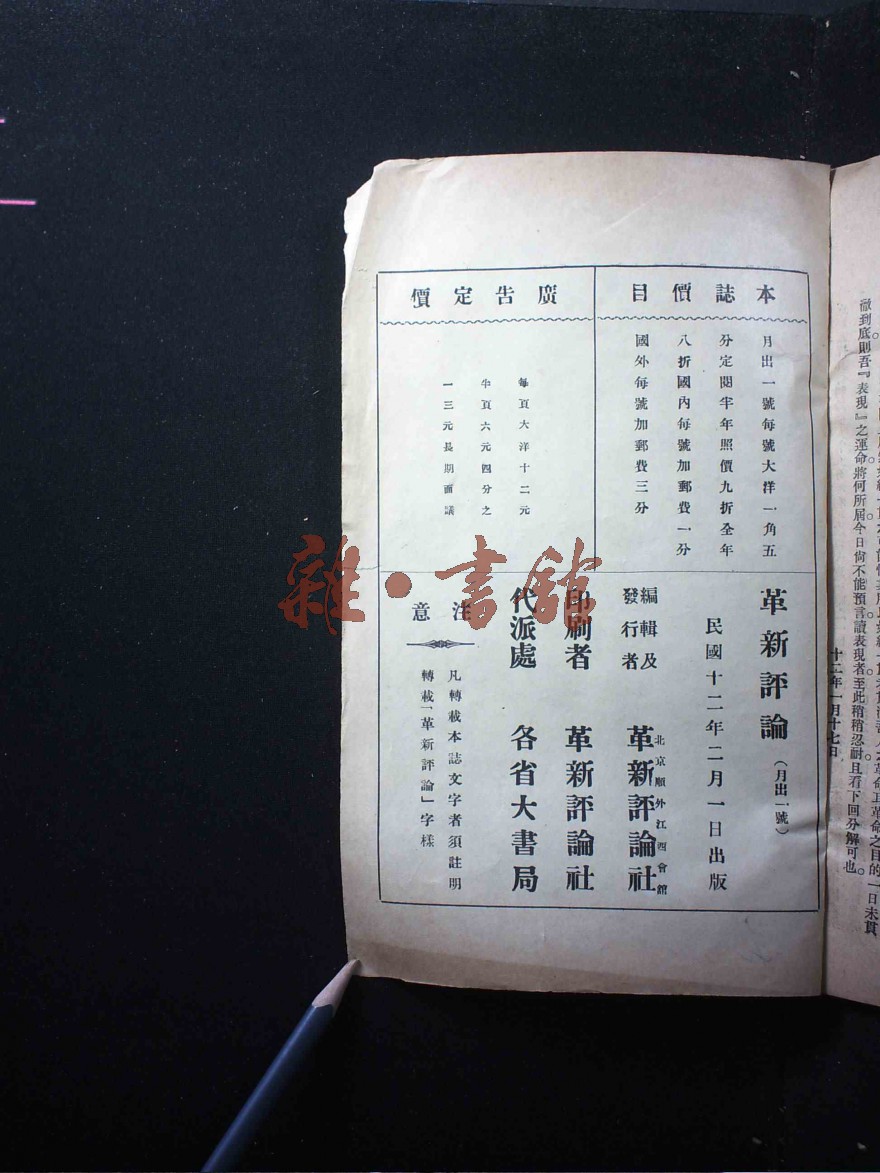 徹到底則吾『表現』之運命將何所屆今日尙不能預言讀表現者至此稍稍忍耐且看下回分解可也。
十二年一月十七日
本誌價目
月出一號每號大洋一角五
分定閱半年照價九折全年
八折國內每號加郵費一分
國外每號加郵費三分
廣告定價
每頁大洋十二元
半頁六元四分之
一三元長期面議
革新評論（月出一號）
民國十二年二月一日出版
編輯及
發行者
北京順外江西會館
革新評論社
印刷者 革新評論社
代派處 各省大書局
注意
凡轉載本誌文字者須註明
轉載「革新評論」字樣
雜·書館